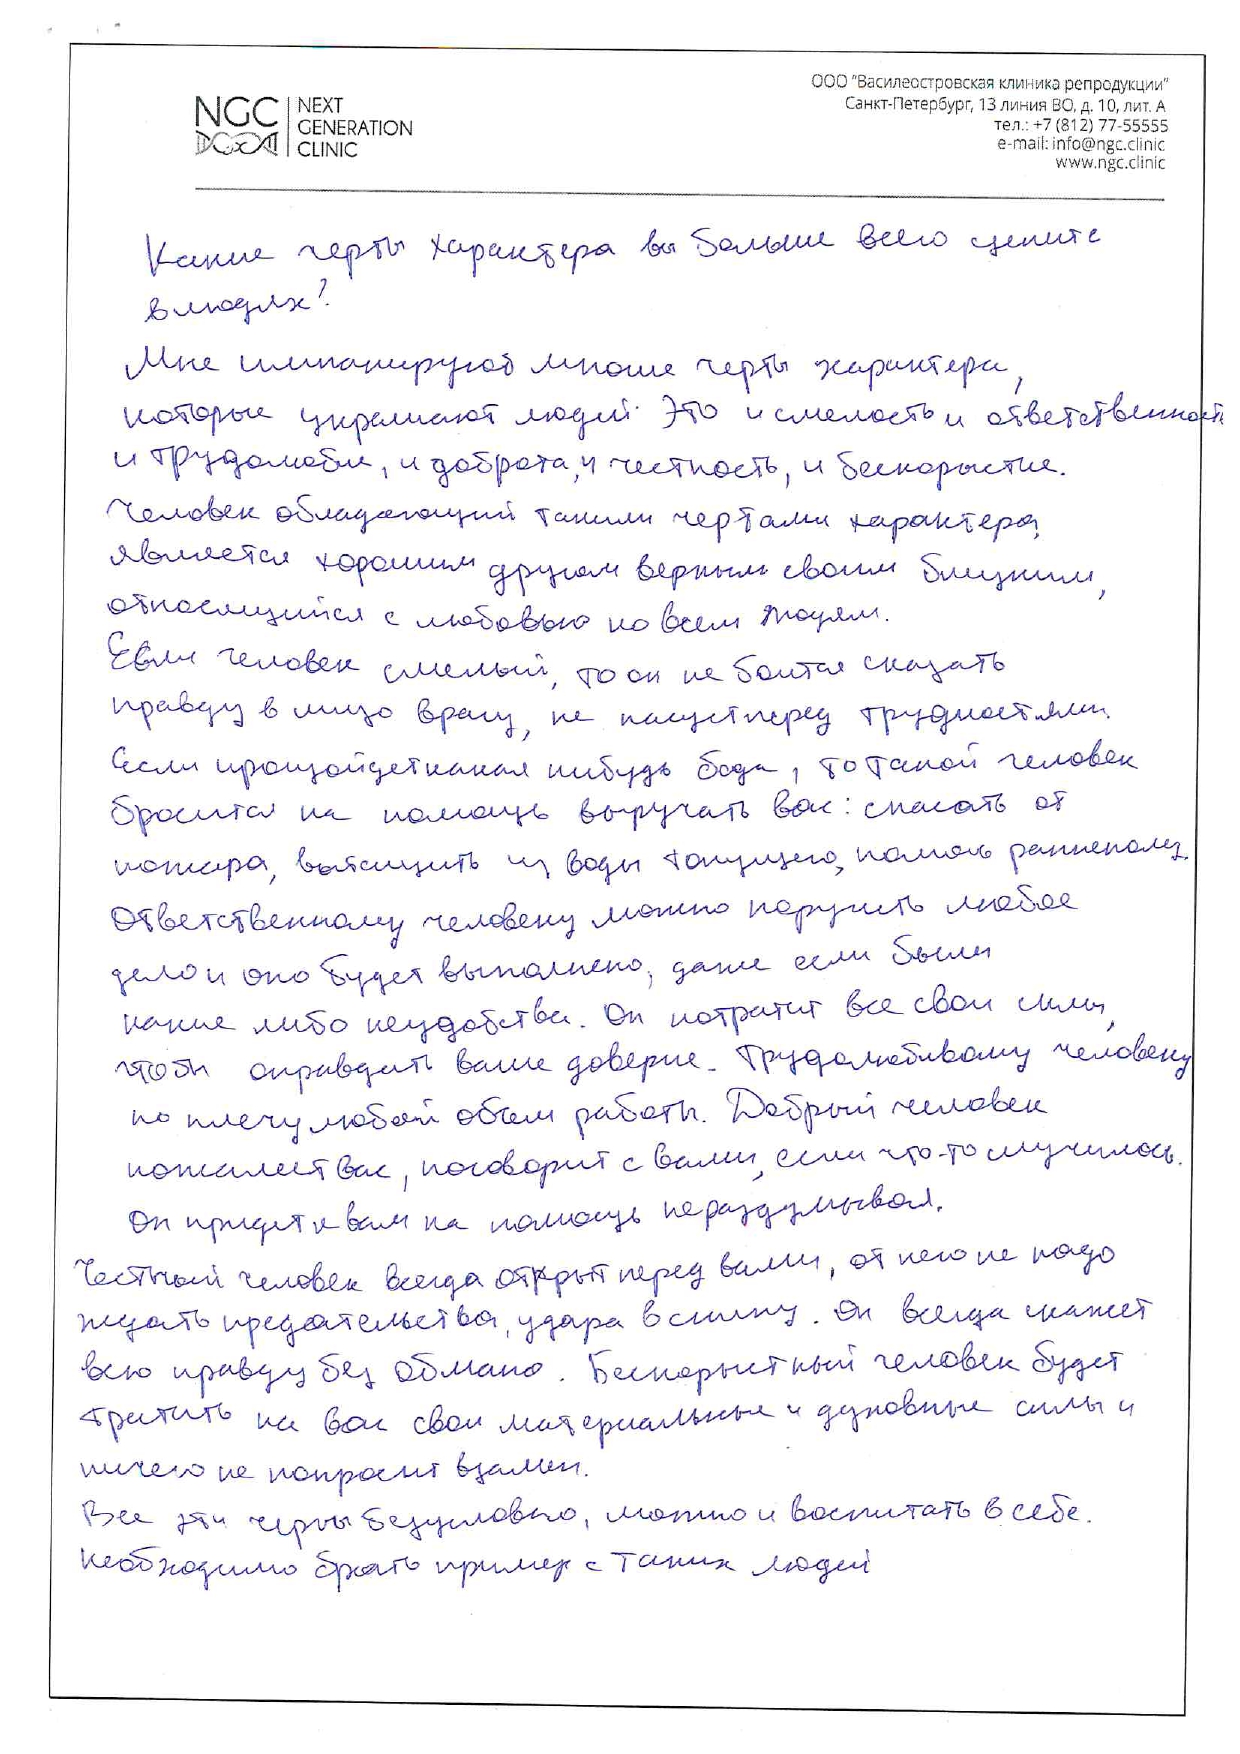 NGC NEXT
GENERATION
CLINIC
ООО "Василеостровская клиника репродукции"
Санкт-Петербург, 13 линия ВО, д. 10, лит. А
тел.: +7 (812) 77-55555
e-mail: info@ngc.clinic
www.ngc.clinic
Какие черты характера вы больше всего цените
в людях?
Мне импанируют многие черты характера,
которые украшают людей. Это и смелость и ответственность
и трудолюбие, и доброта, и честность, и бескорыстие.
Человек обладающий такими чертами характера,
является хорошим другом верным своим близким,
относящийся с любовью ко всем людям.
Если человек смелый, то он не боится сказать
правду в лицо врагу, не пасует перед трудностями.
Если произойдет какая нибудь беда, то такой человек
бросится на помощь выручать вас: спасать от
пожара, вытащить из воды тонущего, помочь раненному.
Ответственному человеку можно поручить любое
дело и оно будет выполнено, даже если были
какие либо неудобства. Он потратит все свои силы,
чтобы оправдать ваше доверие. Трудолюбивому человеку
по плечу любой объем работы. Добрый человек
пожалеет вас, поговорит с вами, если что-то случилось.
Он придет к вам на помощь не раздумывая.
Честный человек всегда открыт перед вами, от него не надо
ждать предательства, удара в спину. Он всегда скажет
всю правду без обмана. Бескорыстный человек будет
тратить на вас свои материальные и духовные силы и
ничего не попросит взамен.
Все эти черты безусловно, можно и воспитать в себе.
Необходимо брать пример с таких людей